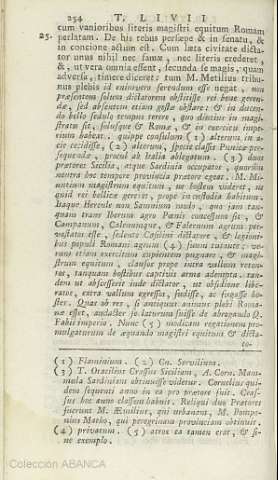 254 T. LIVII
cum vanioribus literis magistri equitum Romam
perlatam. De his rebus persæpe & in senatu, &
25. in concione actum est. Cum læta civitate dicta-
tor unus nihil nec famæ, nec literis crederet,
&, ut vera omnia essent, secunda se magis, quam
adversa, timere diceret; tum M. Metilius tribu-
nus plebis id enimvero ferendum esse negat, non
præsentem solum dictatorem obstitisse rei bene geren-
dæ, sed absentem etiam gestæ obstare: & in ducen-
do bello sedulo tempus terere, quo diutius in magi-
stratu sit, solusque & Romæ, & in exercitu impe-
rium habeat. quippe consulum (1) alterum in a-
cie cecidisse, (2) alterum, specie classis Punicæ per-
sequendæ, procul ab Italia ablegatum. (3) duos
prætores Sicilia, atque Sardinia occupatos, quorum
neutra hoc tempore provincia prætore egeat. M. Mi-
nutium magistrum equitum, ne hostem videret, ne
quid rei bellicæ gereret, prope in custodia habitum.
Itaque hercule non Samnium modo, quo jam tam-
quam trans Iberum agro Pœnis concessum sit, &
Campanum, Calenumque, & Falernum agrum per-
vastatos esse, sedente Casilini dictatore, & legioni-
bus populi Romani agrum (4) suum tutante.
rum etiam exercitum cupientem pugnare, & magi-
strum equitum, clausos prope intra vallum reten-
tos, tanquam hostibus captivis arma ademta. tan-
dem ut abscesserit inde dictator, ut obsidione libe-
ratos, extra vallum egressos, fudisse, ac fugasse ho-
stes. Quas ob res, si antiquus animus plebi Roma-
næ esset, audacter se laturum fuisse de abrogando Q.
Fabii imperio. Nunc (5) modicam rogationem pro-
mulgaturum de æquando magistri equitum & dicta-
to-
(1) Flaminium. (2) Cn. Servilium.
(3) T. Otacilius Crassus Siciliam, A. Corn. Mam-
mula Sardiniam obtinuisse videtur. Cornelius qui-
dem sequenti anno in ea pro prætore fuit.
sus hoc anno classem habuit. Reliqui duo Prætores
fuerunt M. Æmilius, qui urbanam, M. Pompo-
nius Matho, qui peregrinam provinciam obtinuit.
(4) privatum. (5) atrox ea tamen erat, & si-
ne exemplo.
Colección ABANCA